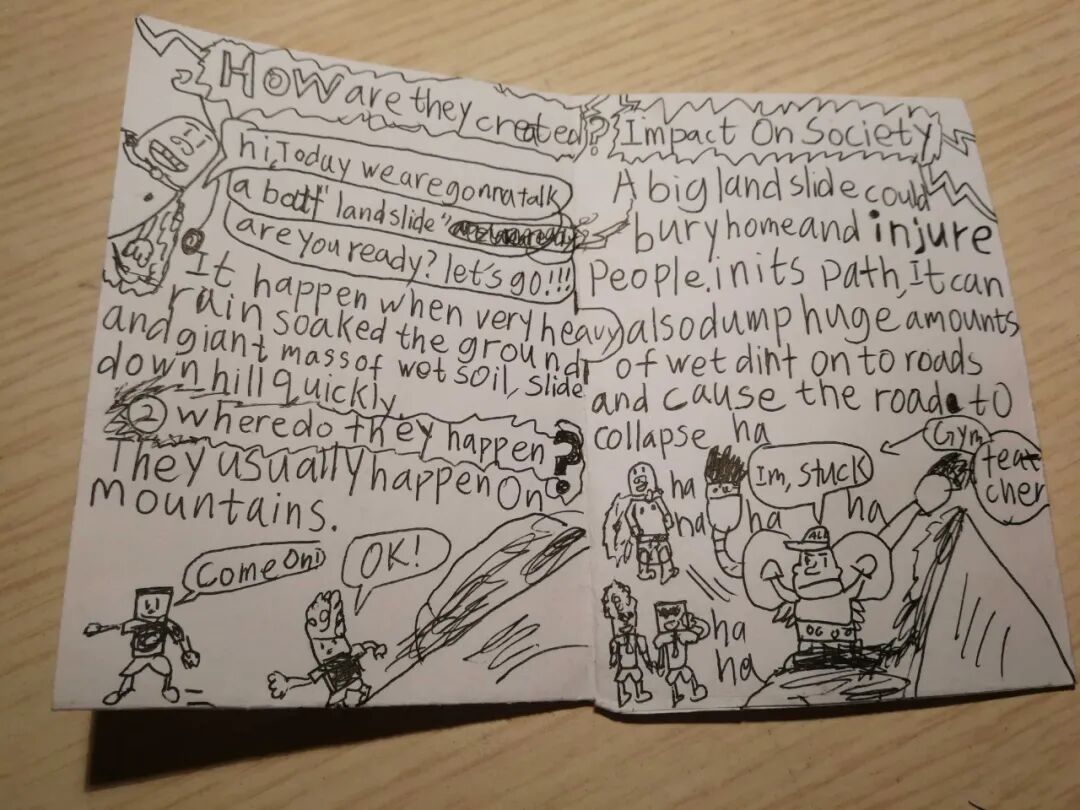 How are they created?
hi, Today we are gonna talk
a bout "landslide"
are you ready? let's go!!!
① It happen when very heavy
rain soaked the ground
and giant mass of wet soil, slide
down hill quickly.
② where do they happen?
They usually happen on
mountains.
Come On!
OK!
Impact On Society
A big land slide could
bury home and injure
People. in its path, It can
also dump huge amounts
of wet dint on to roads
and cause the road to
collapse
ha
ha
ha
ha
ha
Im, stuck
Gym
teat
cher
ha
ha